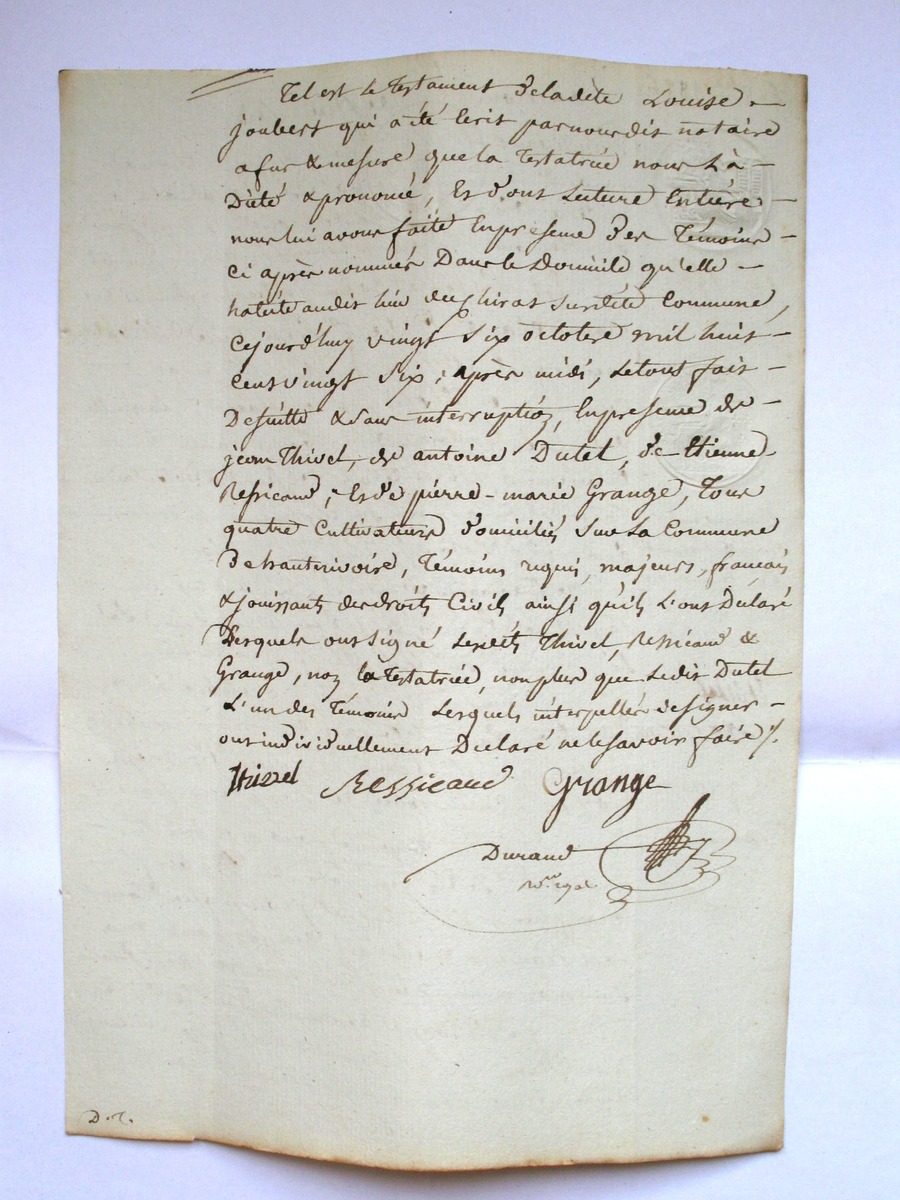 Tel est le testament de ladite Louise
joubert qui a été Ecrit par nous dit notaire
a fur & mesure que la Testatrice nous l'a
Dicté & prononcé, Et d'ont Lecture Entière
nous lui avons faite En presence des Témoins
ci après nommés Dans le Domicile qu'elle
habite audit lieu du chirat susdite Commune,
cejourd'huy vingt six octobre mil huit
cent vingt six, après midi, Le tout fait
De suitte & sans interruption, En presence de
jean Thivel, de antoine Dutel, de Etienne
Ressicaud, Et de pierre-marie Grange, Tous
quatre Cultivateurs domiciliés sur La Commune
De hauterivoire, Témoins requis, majeurs, français
& jouissants des droits Civils ainsi qu'ils L'ont Declaré
Lesquels ont signé Lesdits Thivel, Ressicaud &
Grange, non la Testatrice, non plus que Ledit Dutel
L'un des Témoins Lesquels interpellés de signer
ont individuellement Declaré ne le savoir faire
Thivel Ressicaud Grange
Durand
D.T.